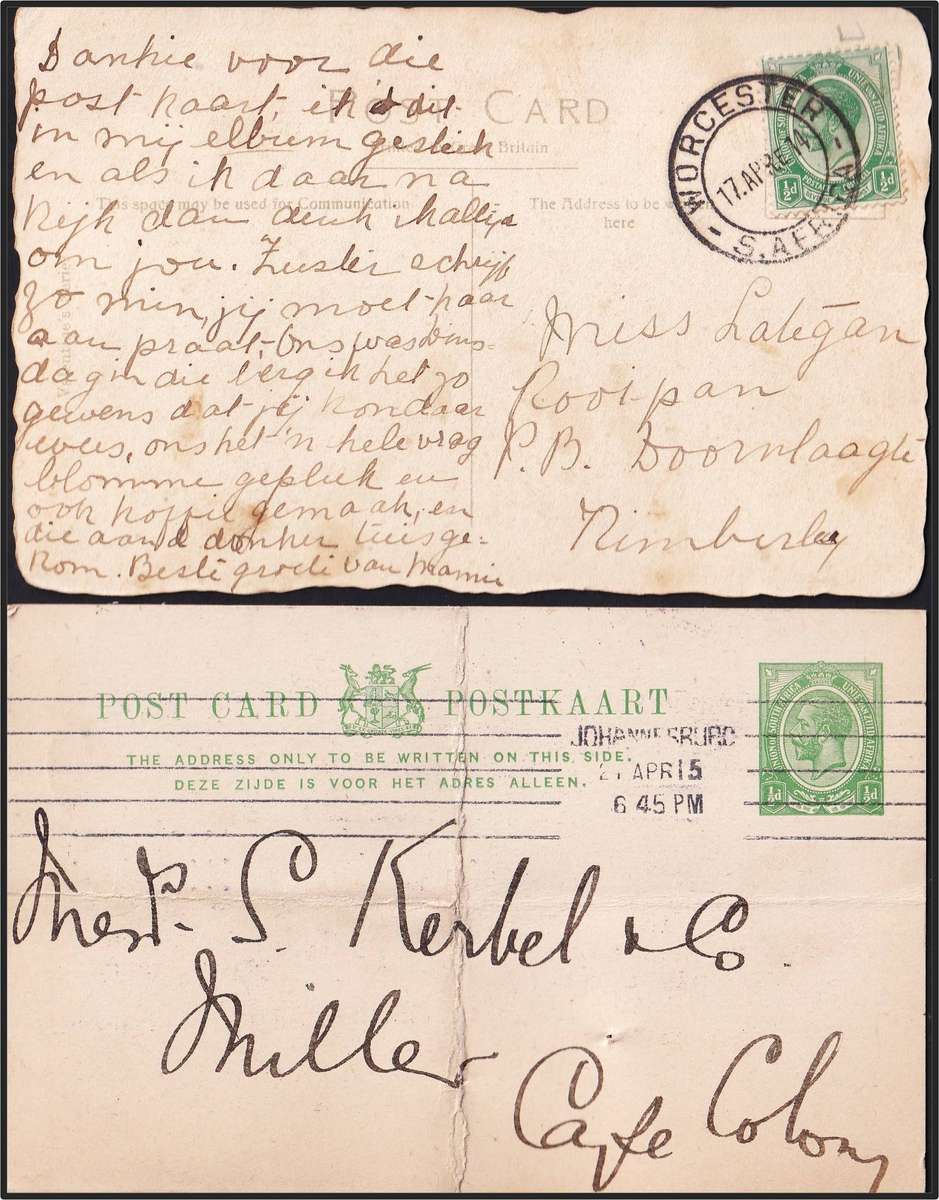 Dankie voor die
post kaart, ik d dit
in mij elbum geslik
en als ik daar na
kijk dan denk ik altijd
om jou. Zuster schrijf
zo min, jij moet haar
aan praat, Ons was Dins-
dag in die berg ik het zo
gewens dat jij kon daar
wees, ons het 'n hele vrag
blomme gepluk en
ook koffie gemaak, en
die aand donker tuisge-
kom. Beste groete van Mamie
POST CARD
Britain
This space may be used for Communication
The Address to be written
here
WORCESTER
17.APRE.14
S.AFR
UNION OF SOUTH AFRICA
UNIE VAN ZUID AFRIKA
½d ½d
Miss Lategan
Rooipan
P.B. Doornlaagte
Kimberley
POST CARD POSTKAART
THE ADDRESS ONLY TO BE WRITTEN ON THIS SIDE.
DEZE ZIJDE IS VOOR HET ADRES ALLEEN.
JOHANNESBURG
21 APR 15
6 45 PM
UNION OF SOUTH AFRICA
UNIE VAN ZUID AFRIKA
½d ½d
Messrs. S. Kerbel & Co.
Miller
Cape Colony